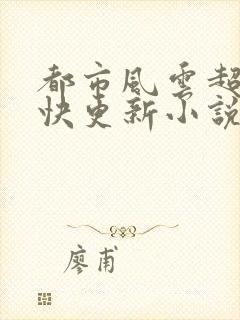 都市風雲超
快更新小說
廖甫